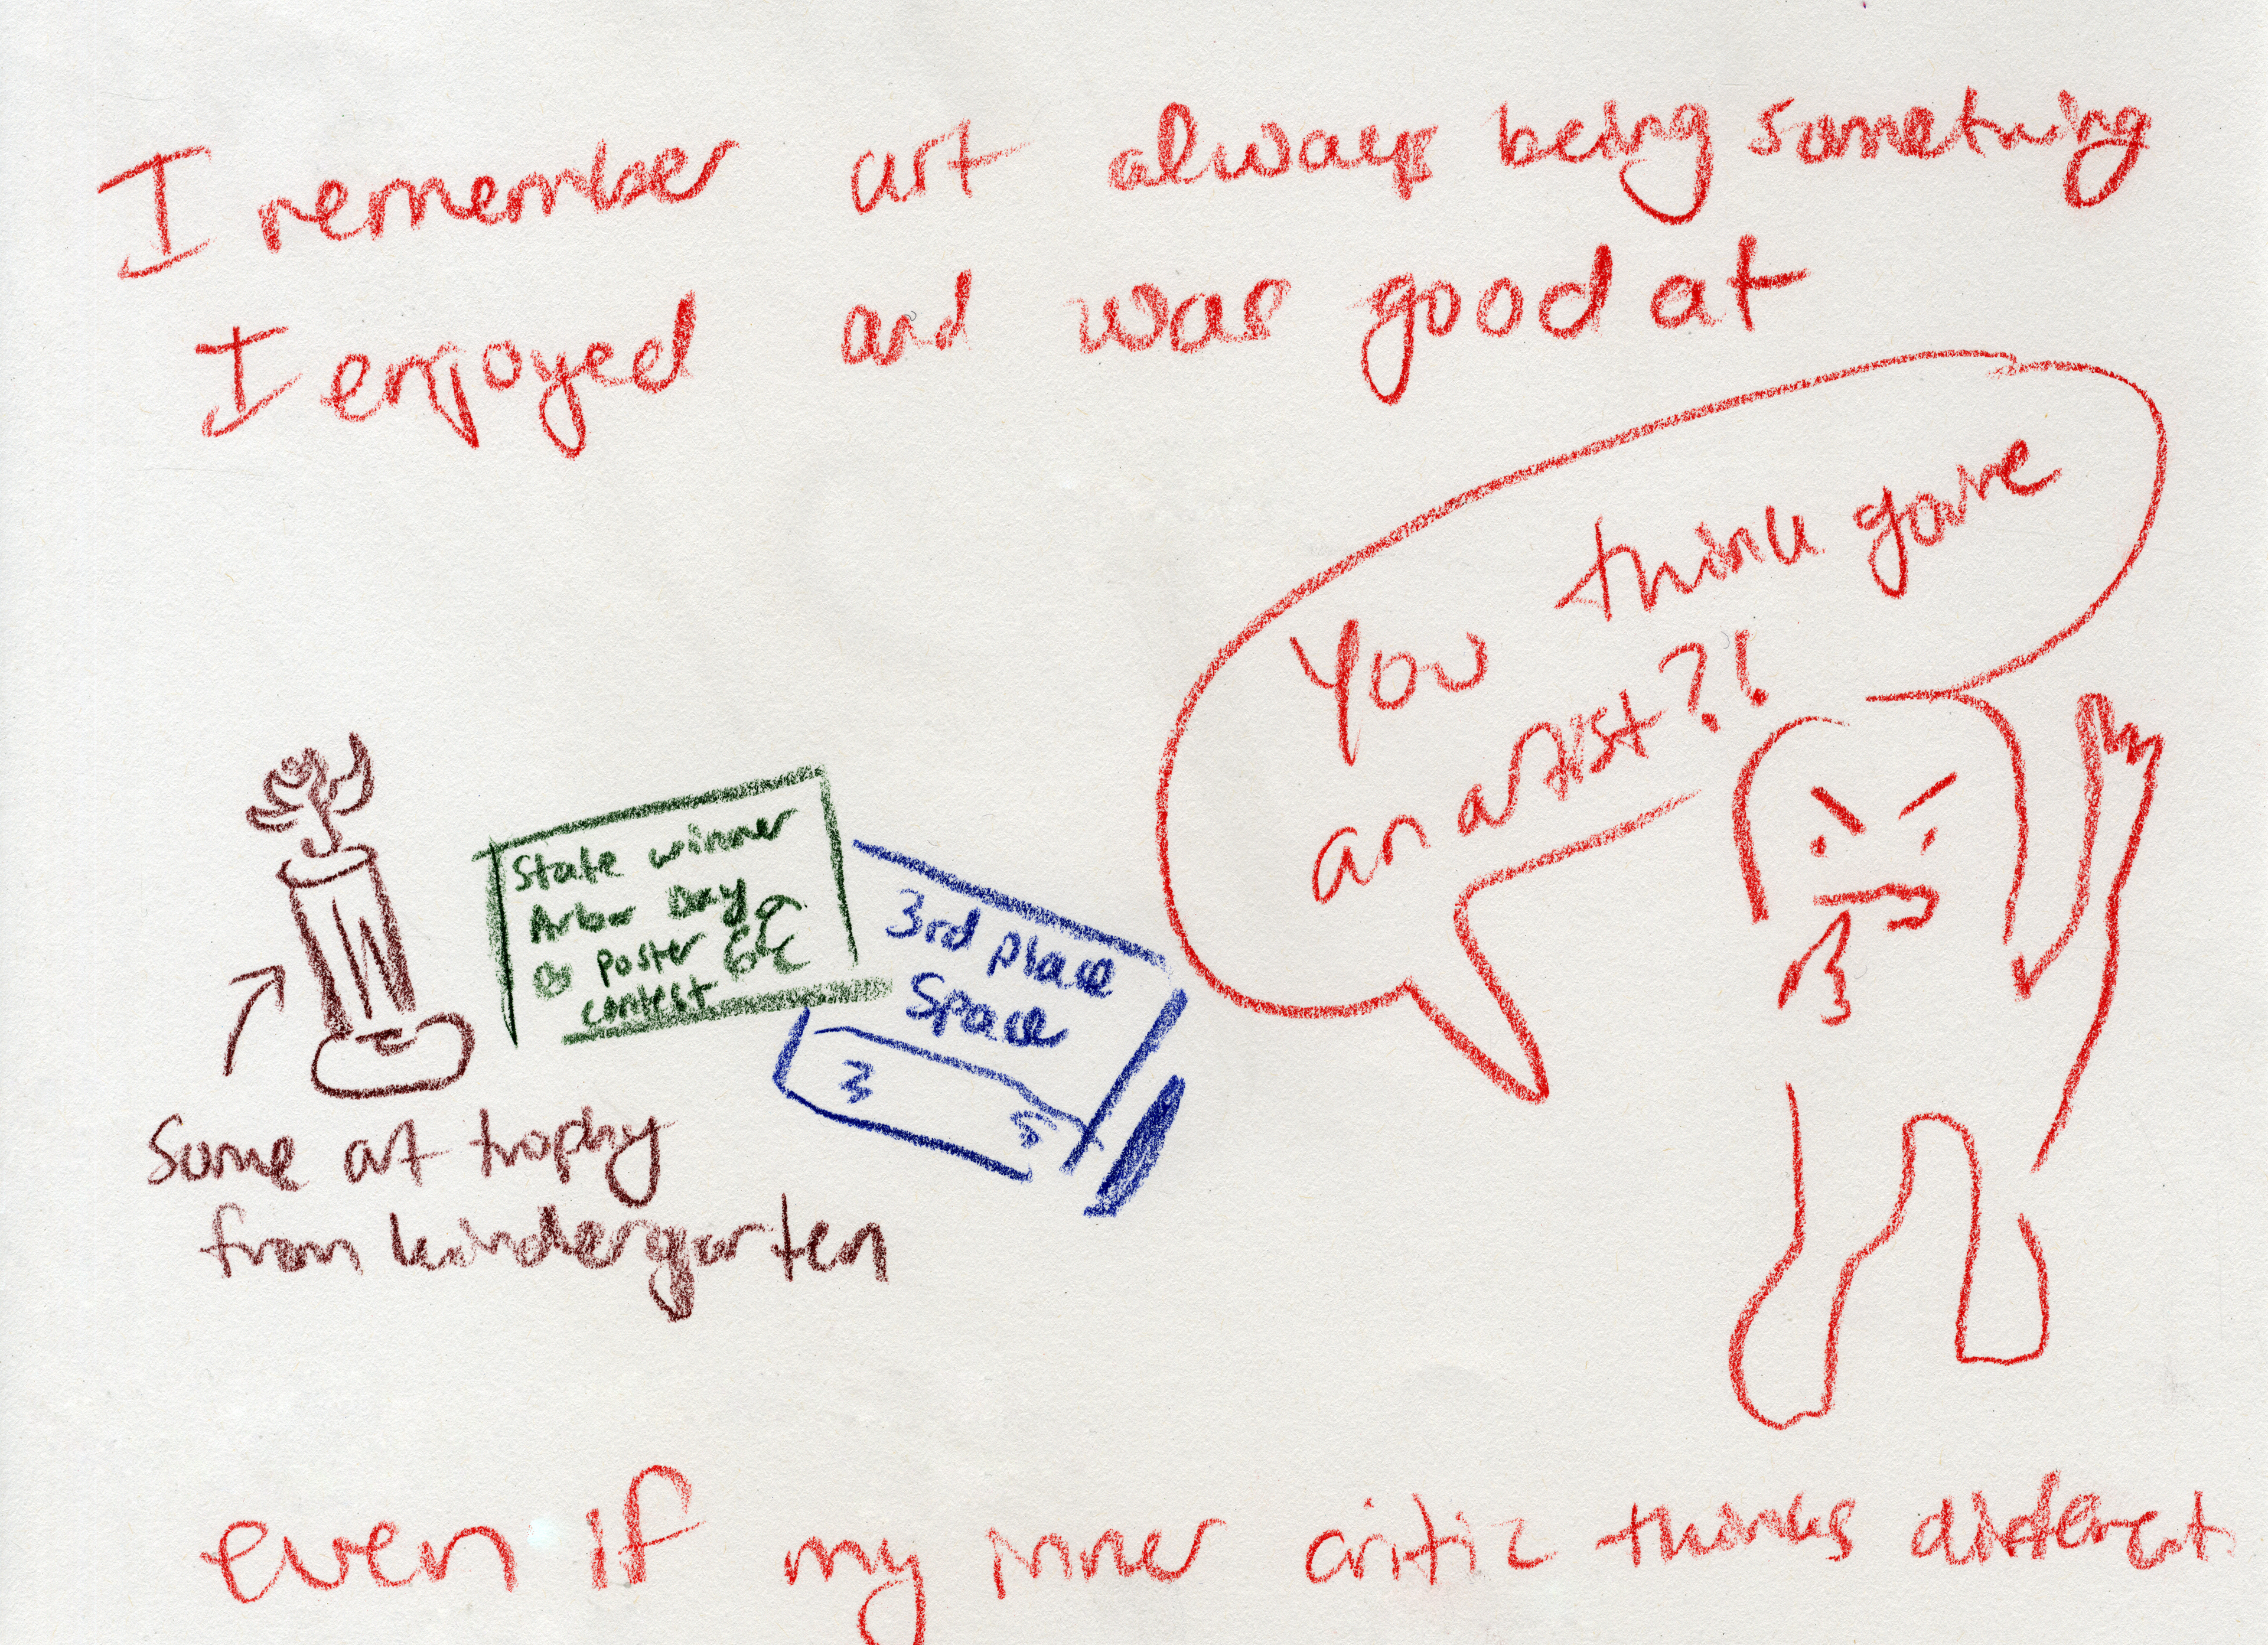 I remember art always being something
I enjoyed and was good at
You think
an artist?!
State winner
Arbor Day
poster
contest
3rd place
Space
Some art trophy
from kindergarten
even if my inner critic thinks different